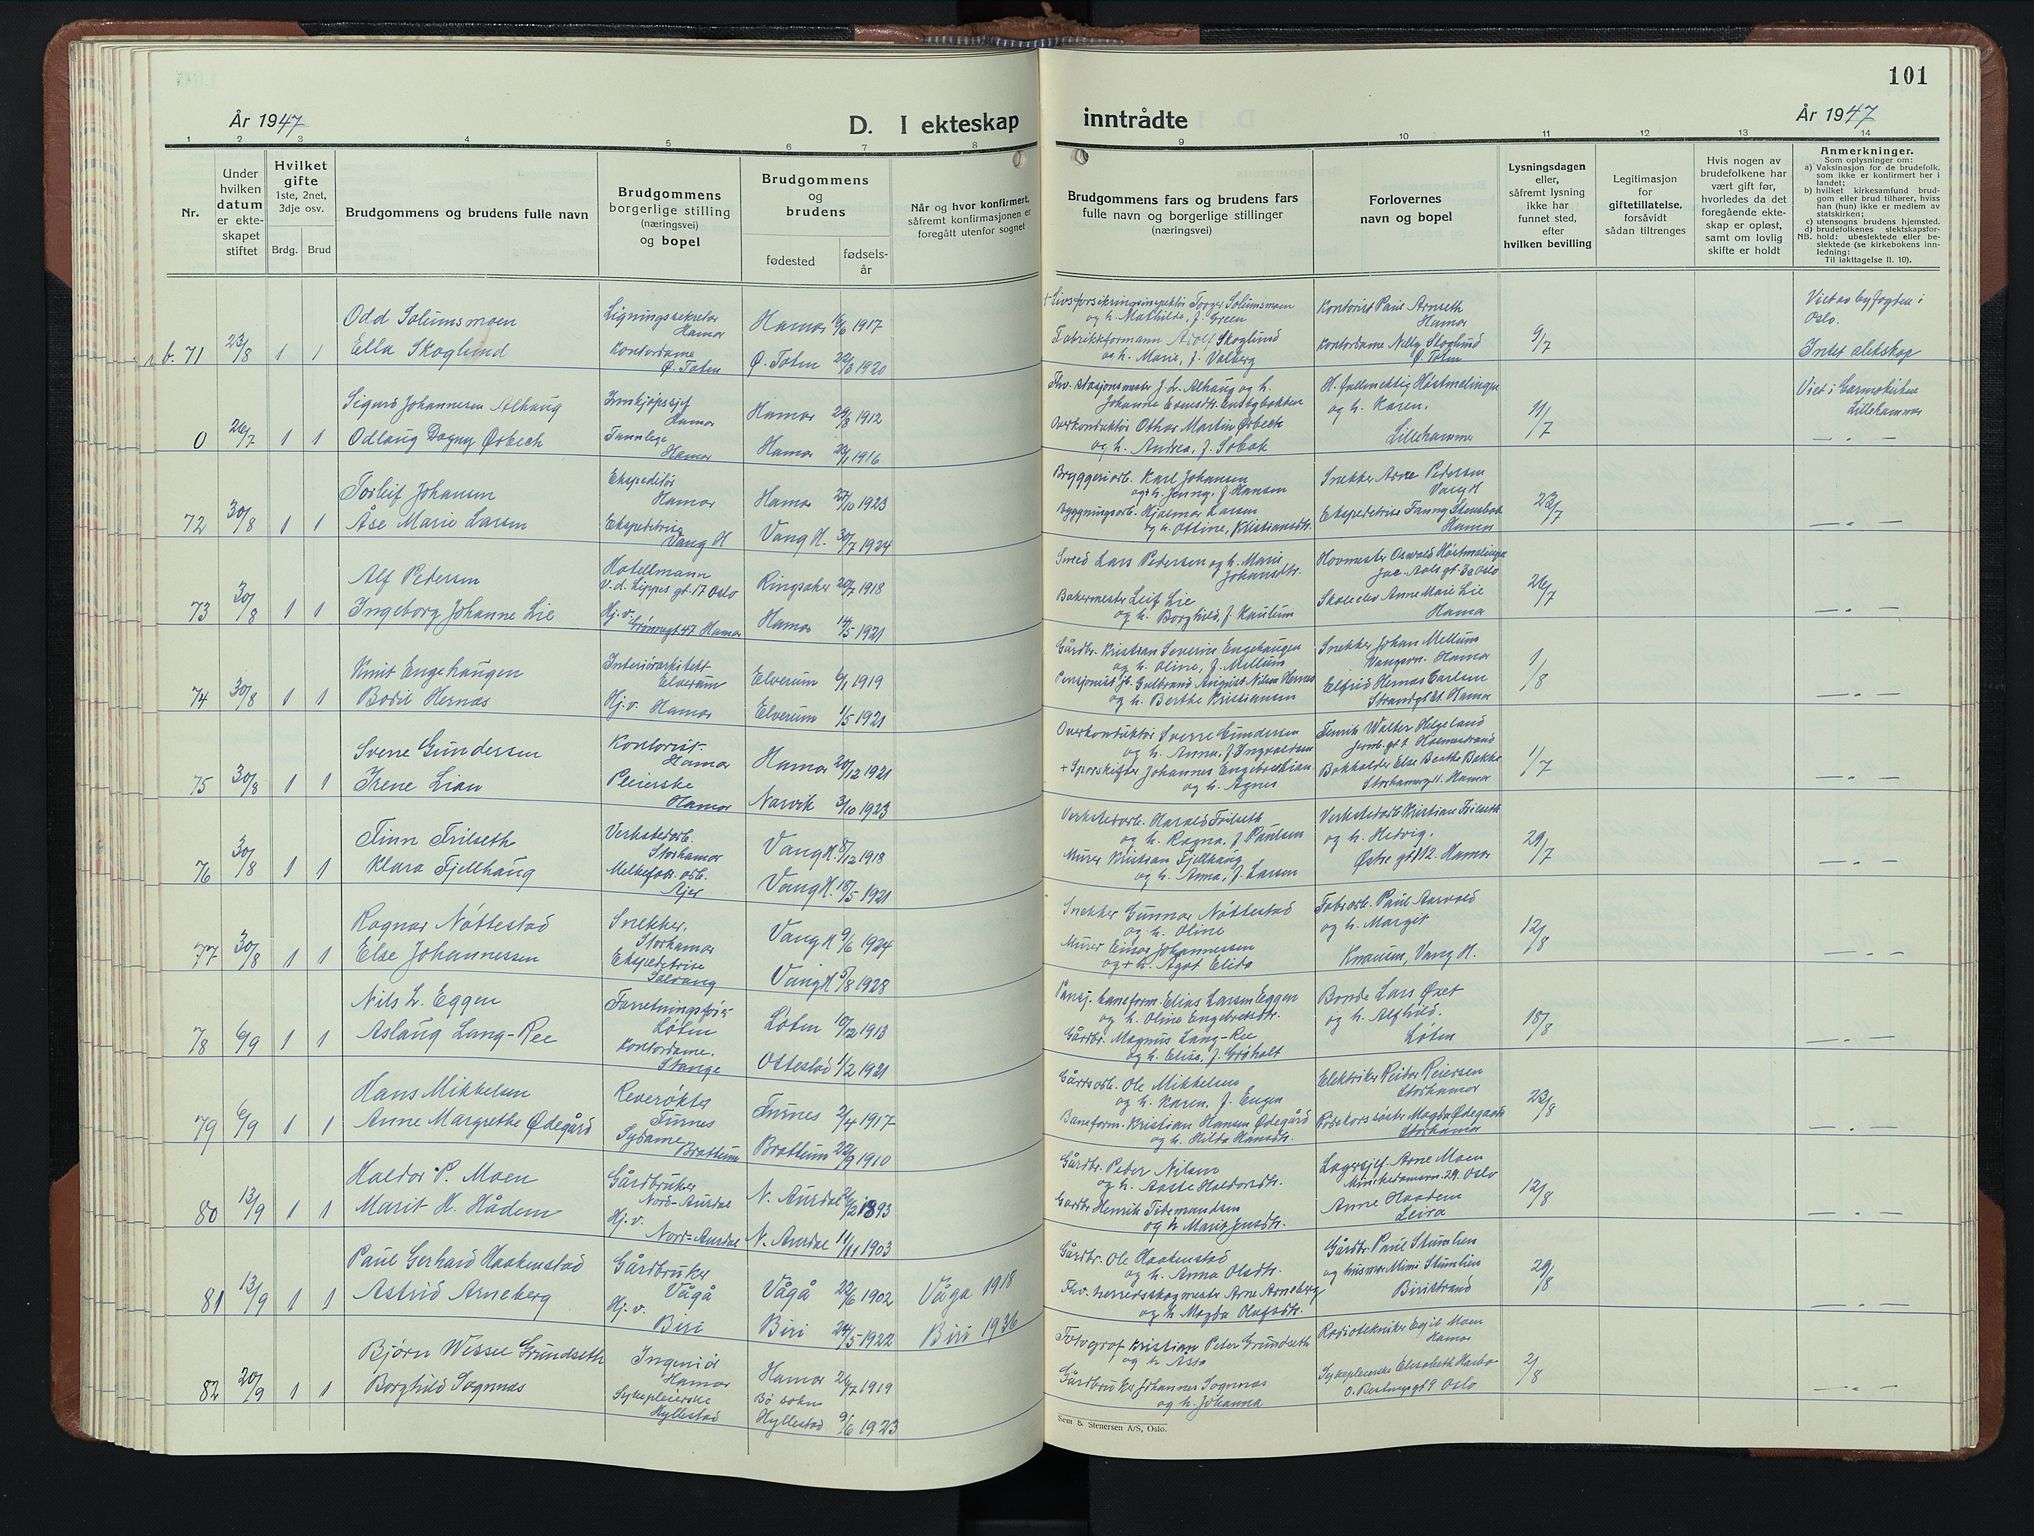 101
År 1947
D. I ekteskap inntrådte
År 1947
1 2 3 4 5 6 7 8 9 10 11 12 13 14
Nr.
Under hvilken datum er ekteskapet stiftet
Hvilket gifte 1ste, 2net, 3dje osv.
Brdg. Brud
Brudgommens og brudens fulle navn
Brudgommens borgerlige stilling (næringsvei) og bopel
Brudgommens og brudens
fødested fødselsår
Når og hvor konfirmert, såfremt konfirmasjonen er foregått utenfor sognet
Brudgommens fars og brudens fars fulle navn og borgerlige stillinger (næringsvei)
Forlovernes navn og bopel
Lysningsdagen eller, såfremt lysning ikke har funnet sted, efter hvilken bevilling
Legitimasjon for giftetillatelse, forsåvidt sådan tiltrenges
Hvis nogen av brudefolkene har vært gift før, hvorledes da det foregående ekteskap er opløst, samt om lovlig skifte er holdt
Anmerkninger.
Som oplysninger om:
a) Vaksinasjon for de brudefolk, som ikke er konfirmert her i landet;
b) hvilket kirkesamfund brudgom eller brud tilhører, hviss han (hun) ikke er medlem av statskirken;
c) utensogns brudens hjemsted.
d) brudefolkenes slektskapsforhold: ubeslektede eller beslektede (se kirkebokens innledning;
NB. Til iakttagelse ll. 10).
b. 71 23/8 1 1
Odd Solumsmoen Ligningssekretær Hamar Hamar 16/6 1917
Ella Skoglund Kontordame Ø. Toten Ø. Toten 22/3 1920
+ Livsforsikringsinspektør Torger Solumsmoen og h. Mathilde, f. Green
Fabrikkformann Adolf Skoglund og h. Marie, f. Valberg
Kontorist Paul Arnseth Hamar
Kontordame Nelly Skoglund Ø. Toten
9/7
Viet av byfogden i Oslo.
Intet slektskap
0 26/7 1 1
Sigurd Johannesen Alhaug Innkjøpssjef Hamar Hamar 29/8 1912
Odlaug Dagny Ørbech Tannlege Hamar Hamar 22/1 1916
Fhv. stasjonsmester J. L. Alhaug og h. Johanne Evensdtr.
Overkonduktør Othar Martin Ørbech og h. Andrea, f. Sobak
H. fullmektig Høstmælingen og h. Karen. Lillehammer
11/7
Viet i Garmokirken Lillehammer
— „ —
72 30/8 1 1
Torleif Johansen Ekspeditør Hamar Hamar 27/10 1923
Åse Marie Larsen Ekspeditrise Vang H Vang H. 30/7 1924
Bryggeriarb. Karl Johansen og h. Jenny, f. Hansen
Bygningsarb. Hjalmar Larsen og h. Ottine, Kristiansdtr.
Snekker Arne Pedersen Vang H
Ekspeditrise Fanny Stensbak Hamar
23/7
— „ —
73 30/8 1 1
Alf Pedersen Hotellmann V. d. Lippes gt. 17 Oslo Ringsaker 20/7 1918
Ingeborg Johanne Lie Hj. v. Grønnegt. 47 Hamar Hamar 14/5 1921
Smed Lars Pedersen og h. Marie Johansdtr.
Bakermester Leif Lie og h. Borghild, f. Kaulum
Hovmester Oswald Høstmælingen Jac. Aals gt. 3a Oslo
Skoleelev Anne Marie Lie Hamar
26/7
— „ —
74 30/8 1 1
Knut Engehaugen Interiørarkitekt Elverum Elverum 6/1 1919
Bodil Hernæs Hj. v. Hamar Elverum 1/5 1921
Gårdbr. Kristian Severin Engehaugen og h. Oline, f. Mellum
Pensjonist Gulbrand August Nilsen Hernes og h. Berthe Kristiansen
Snekker Johan Mellum Vangsvn. Hamar
Elfrid Hernæs Carlsen Strandgt. Hamar
1/8
— „ —
75 30/8 1 1
Svene Gundersen Kontorist Hamar Hamar 20/12 1921
Irene Lian Pleierske Hamar Narvik 3/10 1923
Overkonduktør Sverre Gundersen og h. Anna, f. Ingvaldsen
+ Sporskifter Johannes Engebret Lian og h. Agnes
Fenrik Walter Helgeland Jernb. gt. 1 Holmestrand
Bokholder Else Beathe Bakke Storhamarg. 11. Hamar
1/7
— „ —
76 30/8 1 1
Finn Frilseth Verkstedarb. Storhamar Vang H. 8/12 1918
Klara Fjellhaug Melkefabr. arb. Ajer Vang H. 18/5 1921
Verkstedarb. Harald Frilseth og h. Ragna, f. Paulsen
Murer Kristian Fjellhaug og h. Anna, f. Larsen
Verkstedarb. Kristian Frilseth og h. Hedvig. Østre gt 112. Hamar
29/7
— „ —
77 30/8 1 1
Ragnar Nøttestad Snekker. Storhamar Vang H 9/6 1924
Else Johannessen Ekspeditrise Vang H 5/8 1928
Snekker Gunnar Nøttestad og h. Oline
Murer Einar Johannessen og h. Agot Elida
Fabr.arb. Paul Aarvold og h. Margit Knausen, Vang H.
12/8
— „ —
78 6/9 1 1
Nils L. Eggen Forretningsfør. Løten Løten 10/12 1913
Aslaug Lang-Ree Kontordame. Stange Ottestad 1/2 1921
Pensj. baneform. Elias Larsen Eggen og h. Oline Engebretsdtr.
Gårdbr. Magnus Lang-Ree og h. Elise, f. Grøholt
Bonde Lars Øxet og h. Alfhild. Løten
18/8
— „ —
79 6/9 1 1
Hans Mikkelsen Reverøkter Furnes Furnes 2/4 1917
Anne Margrethe Ødegård Sydame Brøttum Brøttum 22/9 1910
Gårdsarb. Ole Mikkelsen og h. Karen, f. Engen
Baneform. Kristian Hansen Ødegård og h. Hilda Hansdtr.
Elektriker Reidar Reiersen Storhamar
Rødekorssøster Magda Ødegaard Storhamar
23/8
— „ —
80 13/9 1 1
Haldor P. Moen Gårdbruker Nord-Aurdal N. Aurdal 26/2 1893
Marit H. Hådem Hj. v. Nord-Aurdal N. Aurdal 11/11 1903
Gårdbr. Peder Nilsen og h. Aaste Haldorsdtr.
Gardbr. Henrik Tidemandsen og h. Marit Jensdtr.
Lagersjef Arne Moen Munkedamsvn. 29. Oslo
Anne Haadem Leira
12/8
— „ —
81 13/9 1 1
Paul Gerhard Haakenstad Gårdbruker Vågå Vågå 22/6 1902 Vågå 1918
Astrid Arneberg Hj. v. Biri Biri 24/5 1922 Biri 1936
Gårdbr. Ole Haakenstad og h. Anna Olsdtr.
Fhv. herredsskogmester Arne Arneberg og h. Magda Olufsdtr.
Gårdbr. Paul Stumlien og husmor Mimi Stumlien Biristrand
29/8
— „ —
82 20/9 1 1
Bjørn Wessel Grundseth Ingeniør Hamar Hamar 26/7 1919
Borghild Sognnæs Sykepleierske Hyllestad Bø sokn Hyllestad 9/6 1923
Fotograf Kristian Peter Grundseth og h. Asta
Gårdbruker Johannes Sognnæs og h. Johanna
Radiotekniker Egil Moen Hamar
Sykepleierske Elisabeth Harbo Oslo
2/8
— „ —
Sem & Stenersen A/S, Oslo.